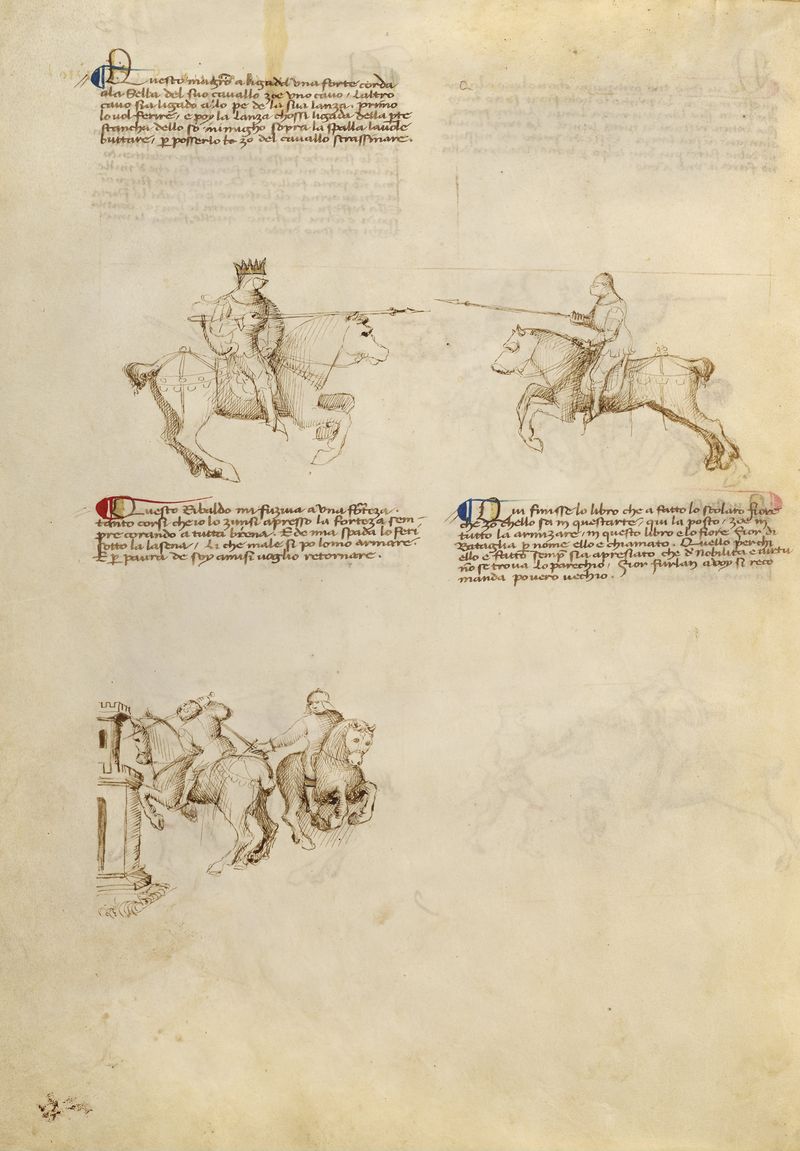 Questo magistro a ligada una forte corda
ala sella del suo cavallo zoe uno cavo / Laltro
cavo sta ligado a lo pe de la sua lanza. primo
lo vol ferire / e poy la lanza chossi ligada della pte
stancha dello so inimigho sopra la spalla la vole
buttare / p posserlo to zo del cavallo strassinare.
Questo Ribaldo mi fuziva a una forteza.
tanto corsi che io lo zunsi apresso la forteza sem-
pre corando a tutta brena. E de mia spada lo feri
sotto la lasena / Li che male si po lomo armare.
E p paura de soy amisi voglio retornare.
Qui finisse lo libro che a fatto lo scolaro fiore
che zo chello sa in questarte / qui la posto / zoe in
tutto la armizare / in questo libro elo fiore Fior di
Bataglia p nome ello e chiamato. Quello per chi
ello e fatto semp sia apresiato che d nobilita e virtu
no se trova lo parechio / Fior furlan a voy si reco
manda povero vechio.